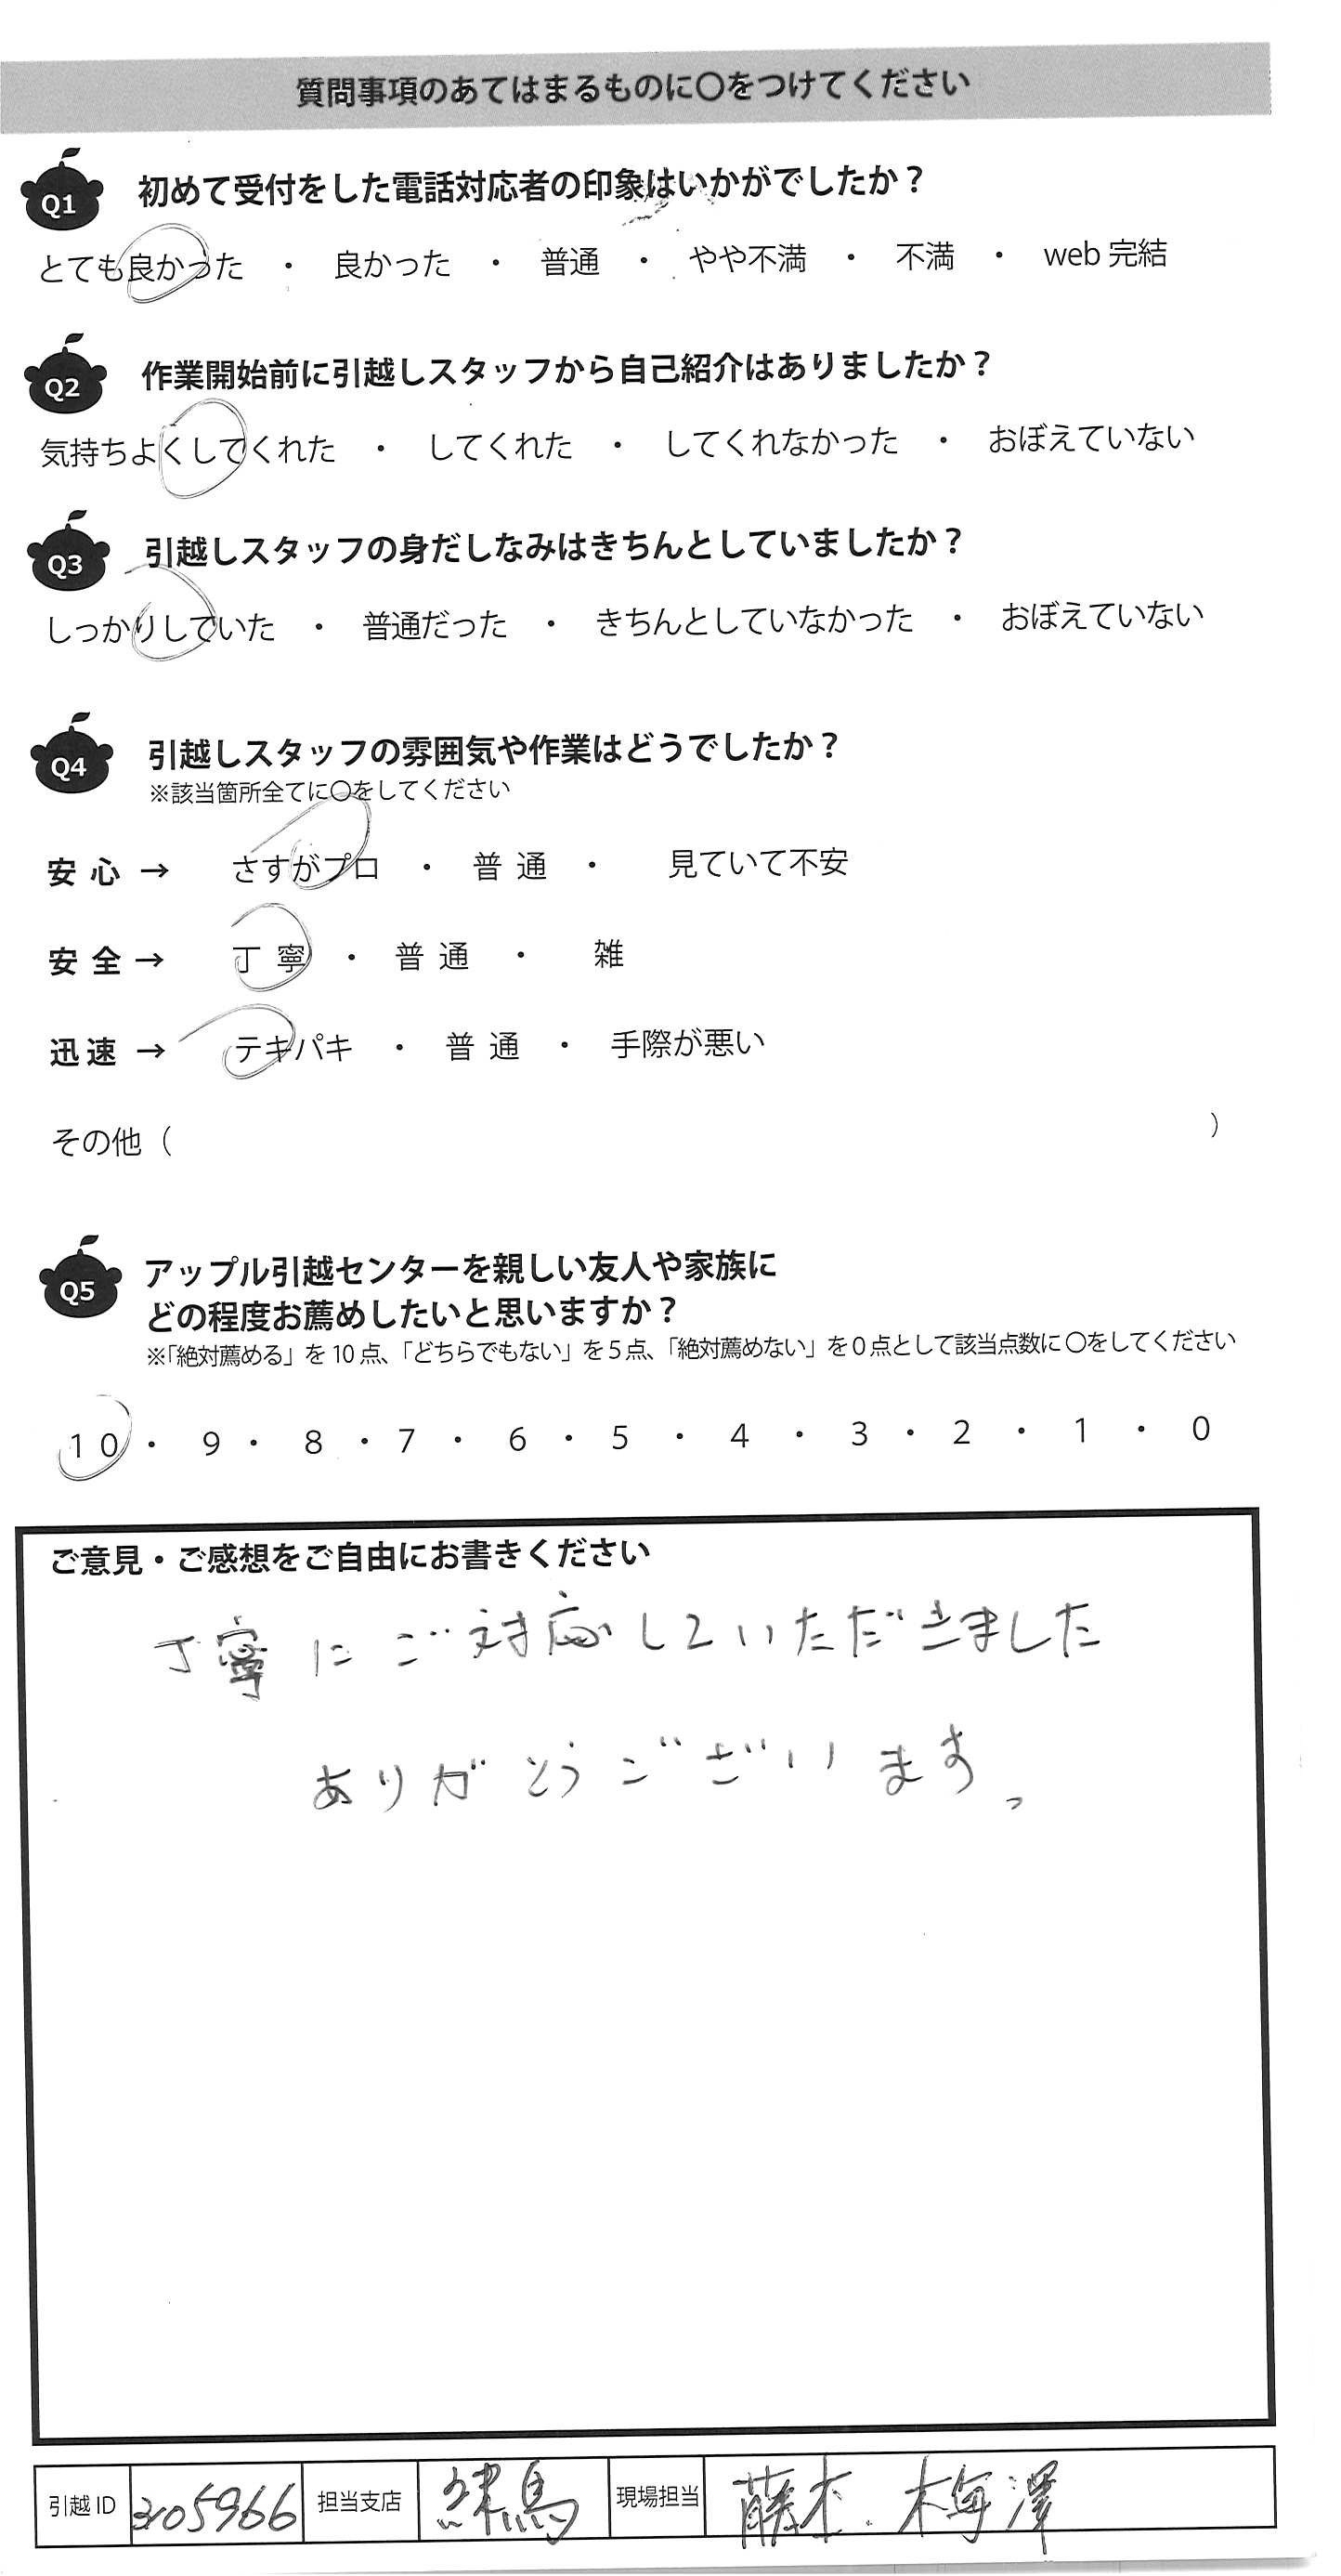 質問事項のあてはまるものに〇をつけてください
Q1 初めて受付をした電話対応者の印象はいかがでしたか？
とても良かった ・ 良かった ・ 普通 ・ やや不満 ・ 不満 ・ web 完結
Q2 作業開始前に引越しスタッフから自己紹介はありましたか？
気持ちよくしてくれた ・ してくれた ・ してくれなかった ・ おぼえていない
Q3 引越しスタッフの身だしなみはきちんとしていましたか？
しっかりしていた ・ 普通だった ・ きちんとしていなかった ・ おぼえていない
Q4 引越しスタッフの雰囲気や作業はどうでしたか？
※該当箇所全てに〇をしてください
安 心 → さすがプロ ・ 普 通 ・ 見ていて不安
安 全 → 丁 寧 ・ 普 通 ・ 雑
迅 速 → テキパキ ・ 普 通 ・ 手際が悪い
その他（ ）
Q5 アップル引越センターを親しい友人や家族に
どの程度お薦めしたいと思いますか？
※「絶対薦める」を 10 点、「どちらでもない」を 5 点、「絶対薦めない」を 0 点として該当点数に 〇をしてください
10 ・ 9 ・ 8 ・ 7 ・ 6 ・ 5 ・ 4 ・ 3 ・ 2 ・ 1 ・ 0
ご意見・ご感想をご自由にお書きください
丁寧にご対応していただきました
ありがとうございます。
引越 ID 担当支店 練馬 現場担当 藤本. 梅澤